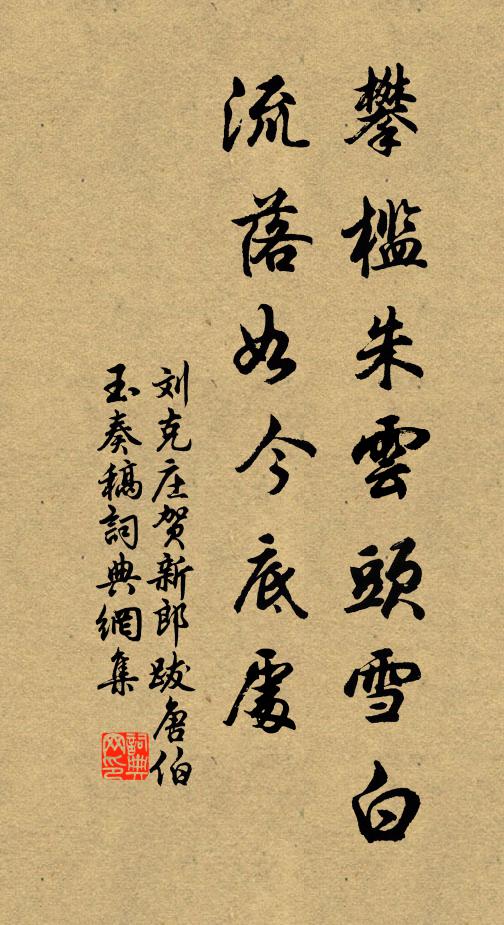 攀檻朱雲頭雪白
流落如今底處
刘克庄贺新郎跋唐伯
玉奏稿詞典網集
詞典
网印